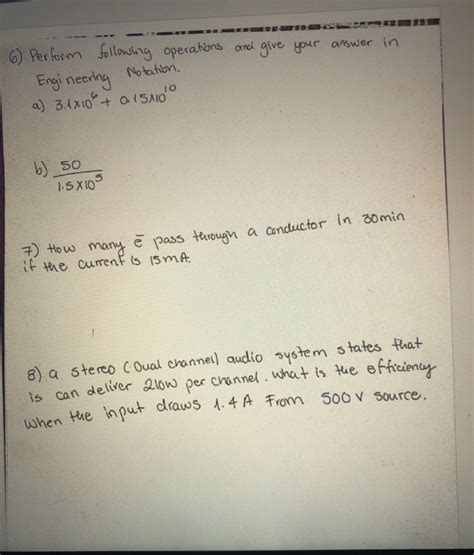 6) Perform following operations and give your answer in
Engineering Notation.
a) 3.1x10⁶ + 0.15x10¹⁰
b) 50
1.5x10⁵
7) How many ē pass through a conductor in 30min
if the current is 15mA.
8) a stereo (Dual channel) audio system states that
is can deliver 210W per channel. What is the efficiency
when the input draws 1.4A From 500V source.